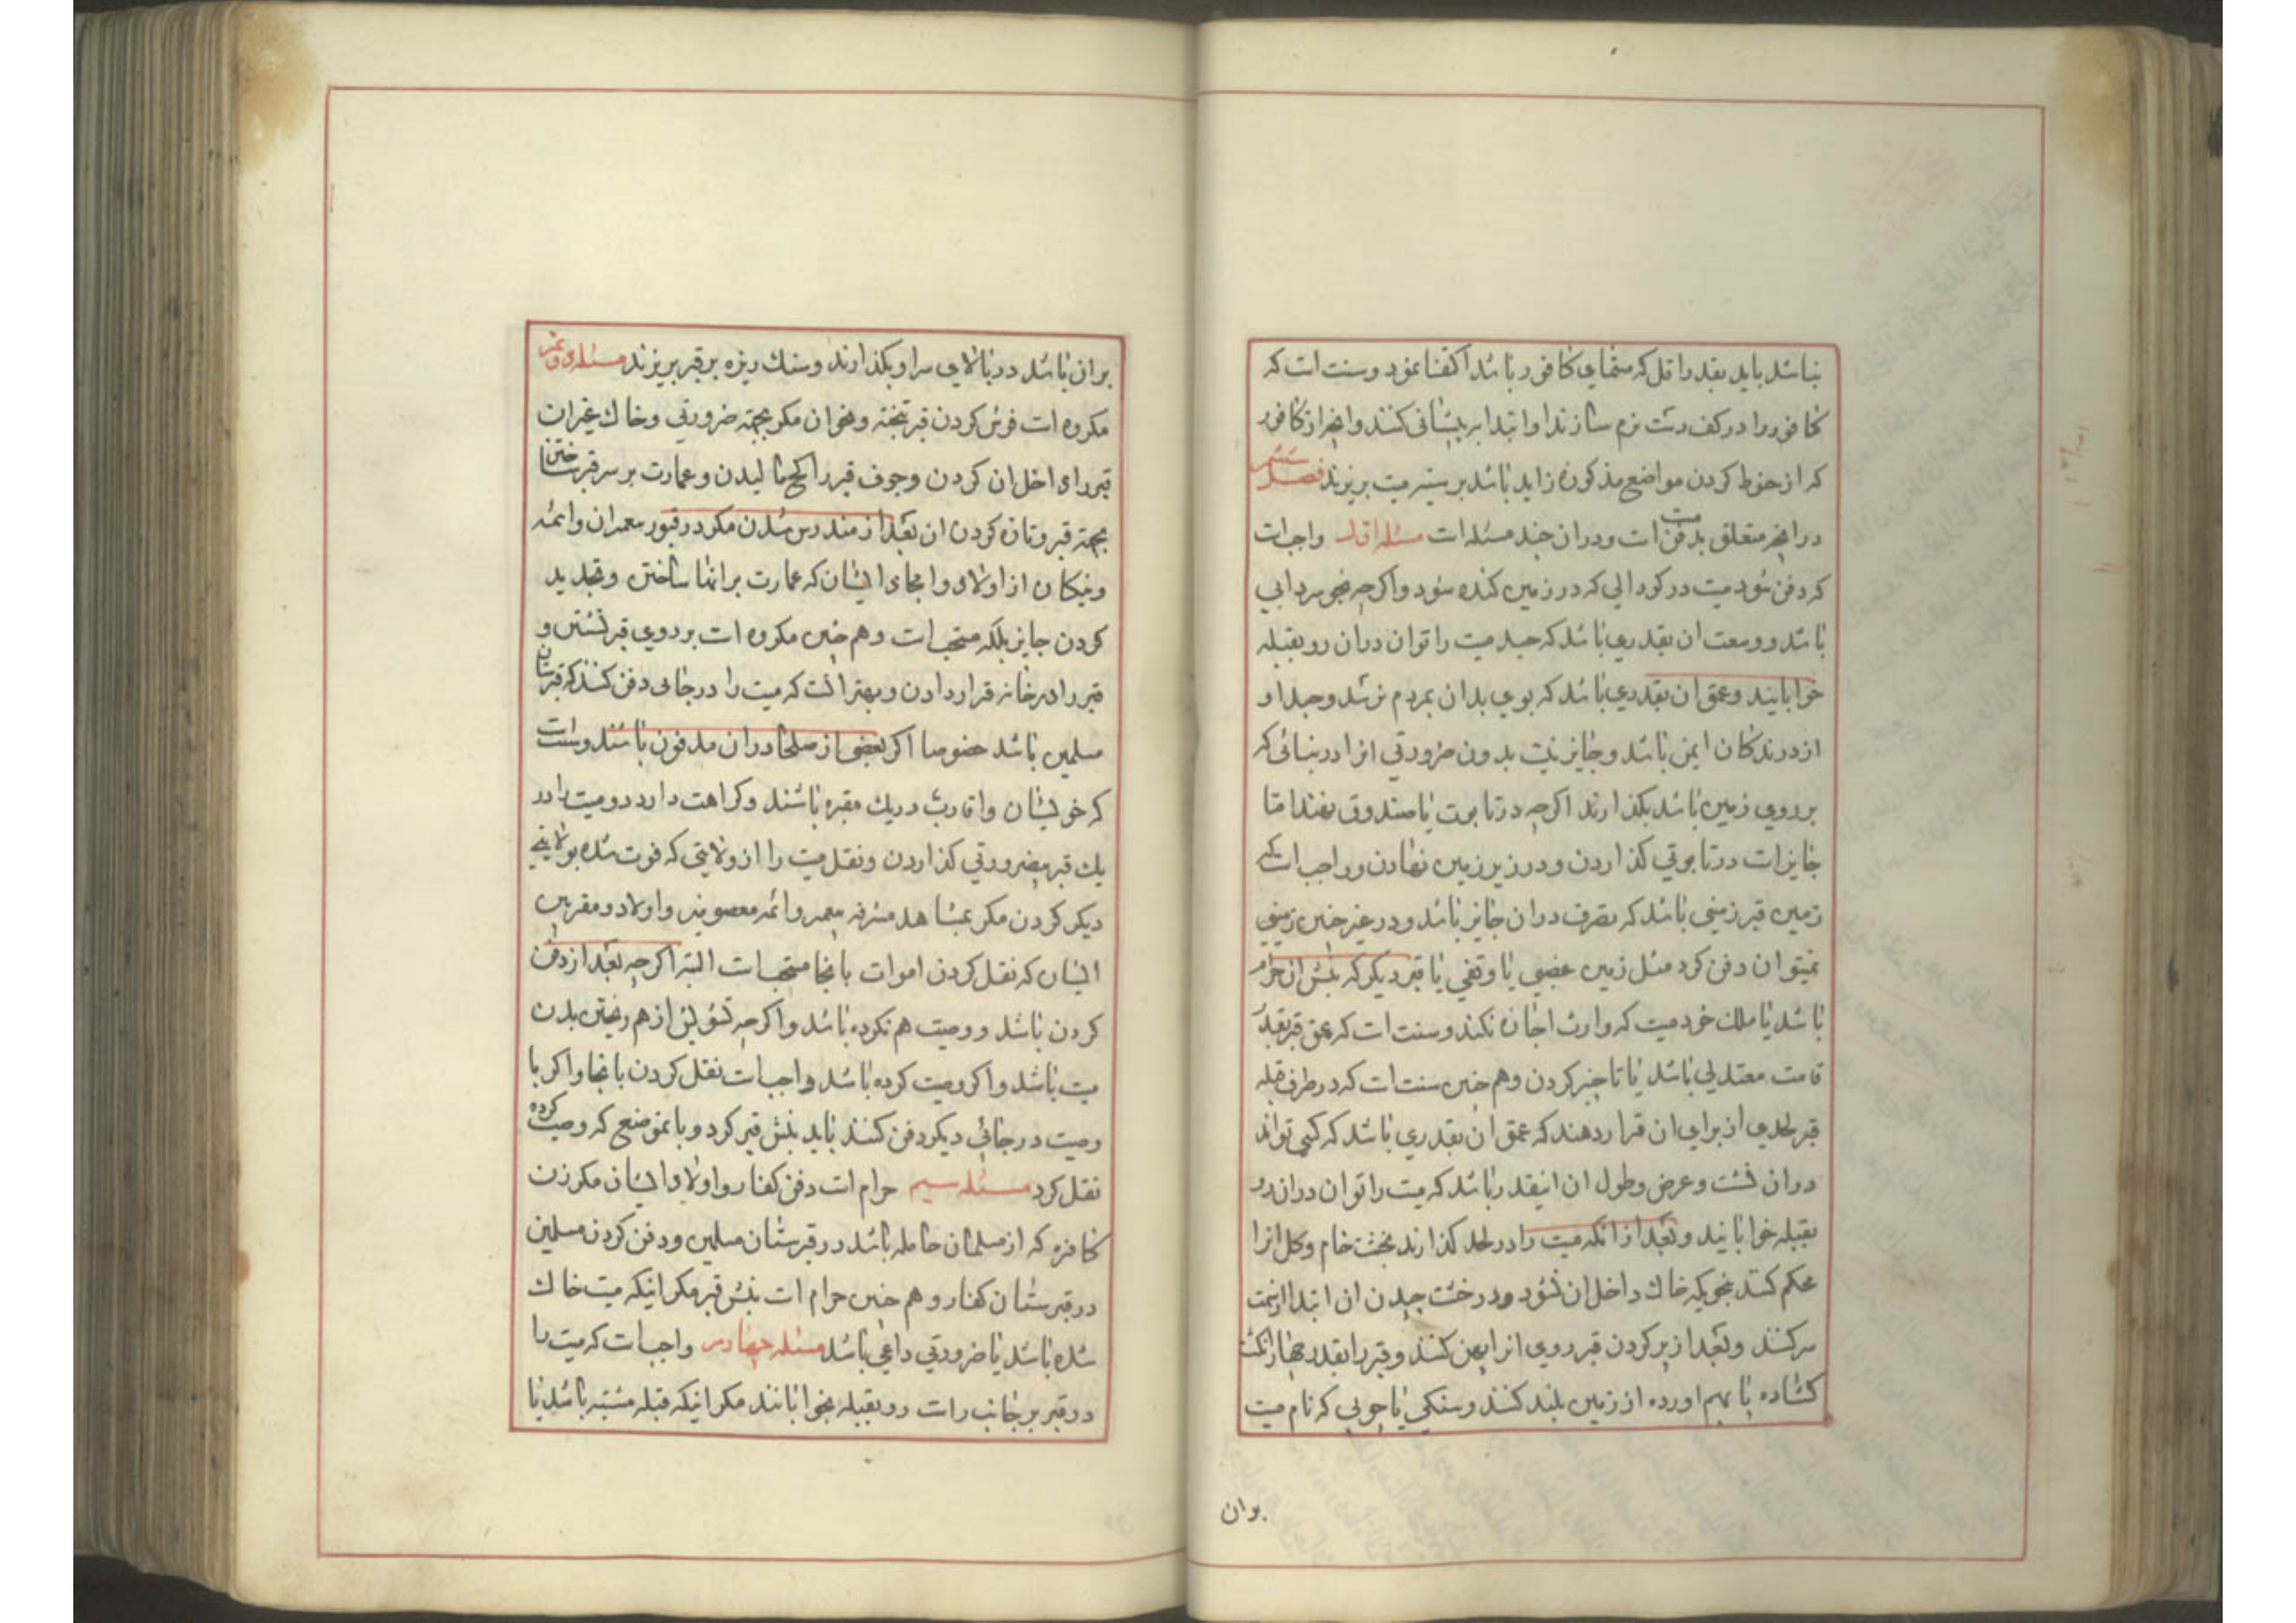 نباشد باید بقدر اقل که مسمای کافور باشد اکتفا نمود و سنت است که
کافور را در کف دست نرم سازند و ابتدا بر پیشانی کنند و انچه از کافور
که از حنوط کردن مواضع مذکوره زاید باشد بر سینه میت بریزند فصل ششم
در انچه متعلق بدفن میت است و دران چند مسئله است مسئله اول واجبست
که دفن شود میت در کودالی که در زمین کنده شود و اکرچه بنحو سردابی
باشد و وسعت ان بقدری باشد که جسد میت را توان دران رو بقبله
خوابانید و عمق ان بقدری باشد که بوی بدان بمردم نرسد و جسد او
از درندکان ایمن باشد و جایز نیست بدون ضرورتی انرا در بنائی که
بر روی زمین باشد بکذارند اکرچه در تابوت یا صندوق نهند اما
جایز است در تابوتی کذاردن و در زیر زمین نهادن و واجب است که
زمین قبر زمینی باشد که تصرف دران جایز باشد و در غیر چنین زمینی
نمیتوان دفن کرد مثل زمین غصبی یا وقفی یا قبر دیکر که نبش ان حرام
باشد یا ملک خود میت که وارث اجازه نکند و سنت است که عمق قبر بقدر
قامت معتدلی باشد یا تا چنبر کردن و هم چنین سنت است که در طرف قبله
قبر لحدی از برای ان قرار دهند که عمق ان بقدری باشد که کسی تواند
دران نشست و عرض و طول ان اینقدر باشد که میت را توان دران رو
بقبله خوابانید و بعد از انکه میت را در لحد کذارند بخشت خام و کل انرا
محکم کنند بنحویکه خاک داخل ان نشود و در خشت چیدن ان ابتدا از سمت
سر کنند و بعد از پر کردن قبر روی انرا پهن کنند و قبر را بقدر چهار انکشت
کشاده یا بهم اورده از زمین بلند کنند و سنکی یا چوبی که نام میت
بران
بران باشد در بالای سر او بکذارند و سنک ریزه بر قبر بریزند مسئله دویم
مکروه است فرش کردن قبر بتخته و نحو ان مکر بجهة ضرورتی و خاک غیر ان
قبر را داخل ان کردن و جوف قبر را کچ مالیدن و عمارت بر سر قبر ساختن
بجهة قبر و تازه کردن ان بعد از مندرس شدن مکر در قبور پیغمبران و ائمه
و نیکان از اولاد و امجاد ایشان که عمارت برانها ساختن و تجدید
کردن جایز بلکه مستحب است و هم چنین مکروه است بر روی قبر نشستن و
قبر را در خانه قرار دادن و بهتر انست که میت را در جائی دفن کنند که قبرستان
مسلمین باشد خصوصا اکر بعضی از صلحا دران مدفون باشند و سنت است
که خویشان و اقارب در یک مقبره باشند و کراهت دارد دو میت را در
یک قبر بیضرورتی کذاردن و نقل میت را از ولایتی که فوت شده بولایتی
دیکر کردن مکر بمشاهد مشرفه پیغمبر و ائمه معصومین و اولاد و مقربین
ایشان که نقل کردن اموات بانجا مستحب است البته اکرچه بعد از دفن
کردن باشد و وصیت هم نکرده باشد و اکرچه تشویش از هم ریختن بدن
میت باشد و اکر وصیت کرده باشد واجب است نقل کردن بانجا و اکر با
وصیت در جائی دیکر دفن کنند باید نبش قبر کرد و بانموضع که وصیت کرده
نقل کرد مسئله سیم حرام است دفن کفار و اولاد ایشان مکر زن
کافره که از مسلمان حامله باشد در قبرستان مسلمین و دفن کردن مسلمین
در قبرستان کفار و هم چنین حرام است نبش قبر مکر اینکه میت خاک
شده باشد یا ضرورتی داعی باشد مسئله چهارم واجب است که میت را
در قبر بر جانب راست رو بقبله بخوابانند مکر اینکه قبله مشتبه باشد یا